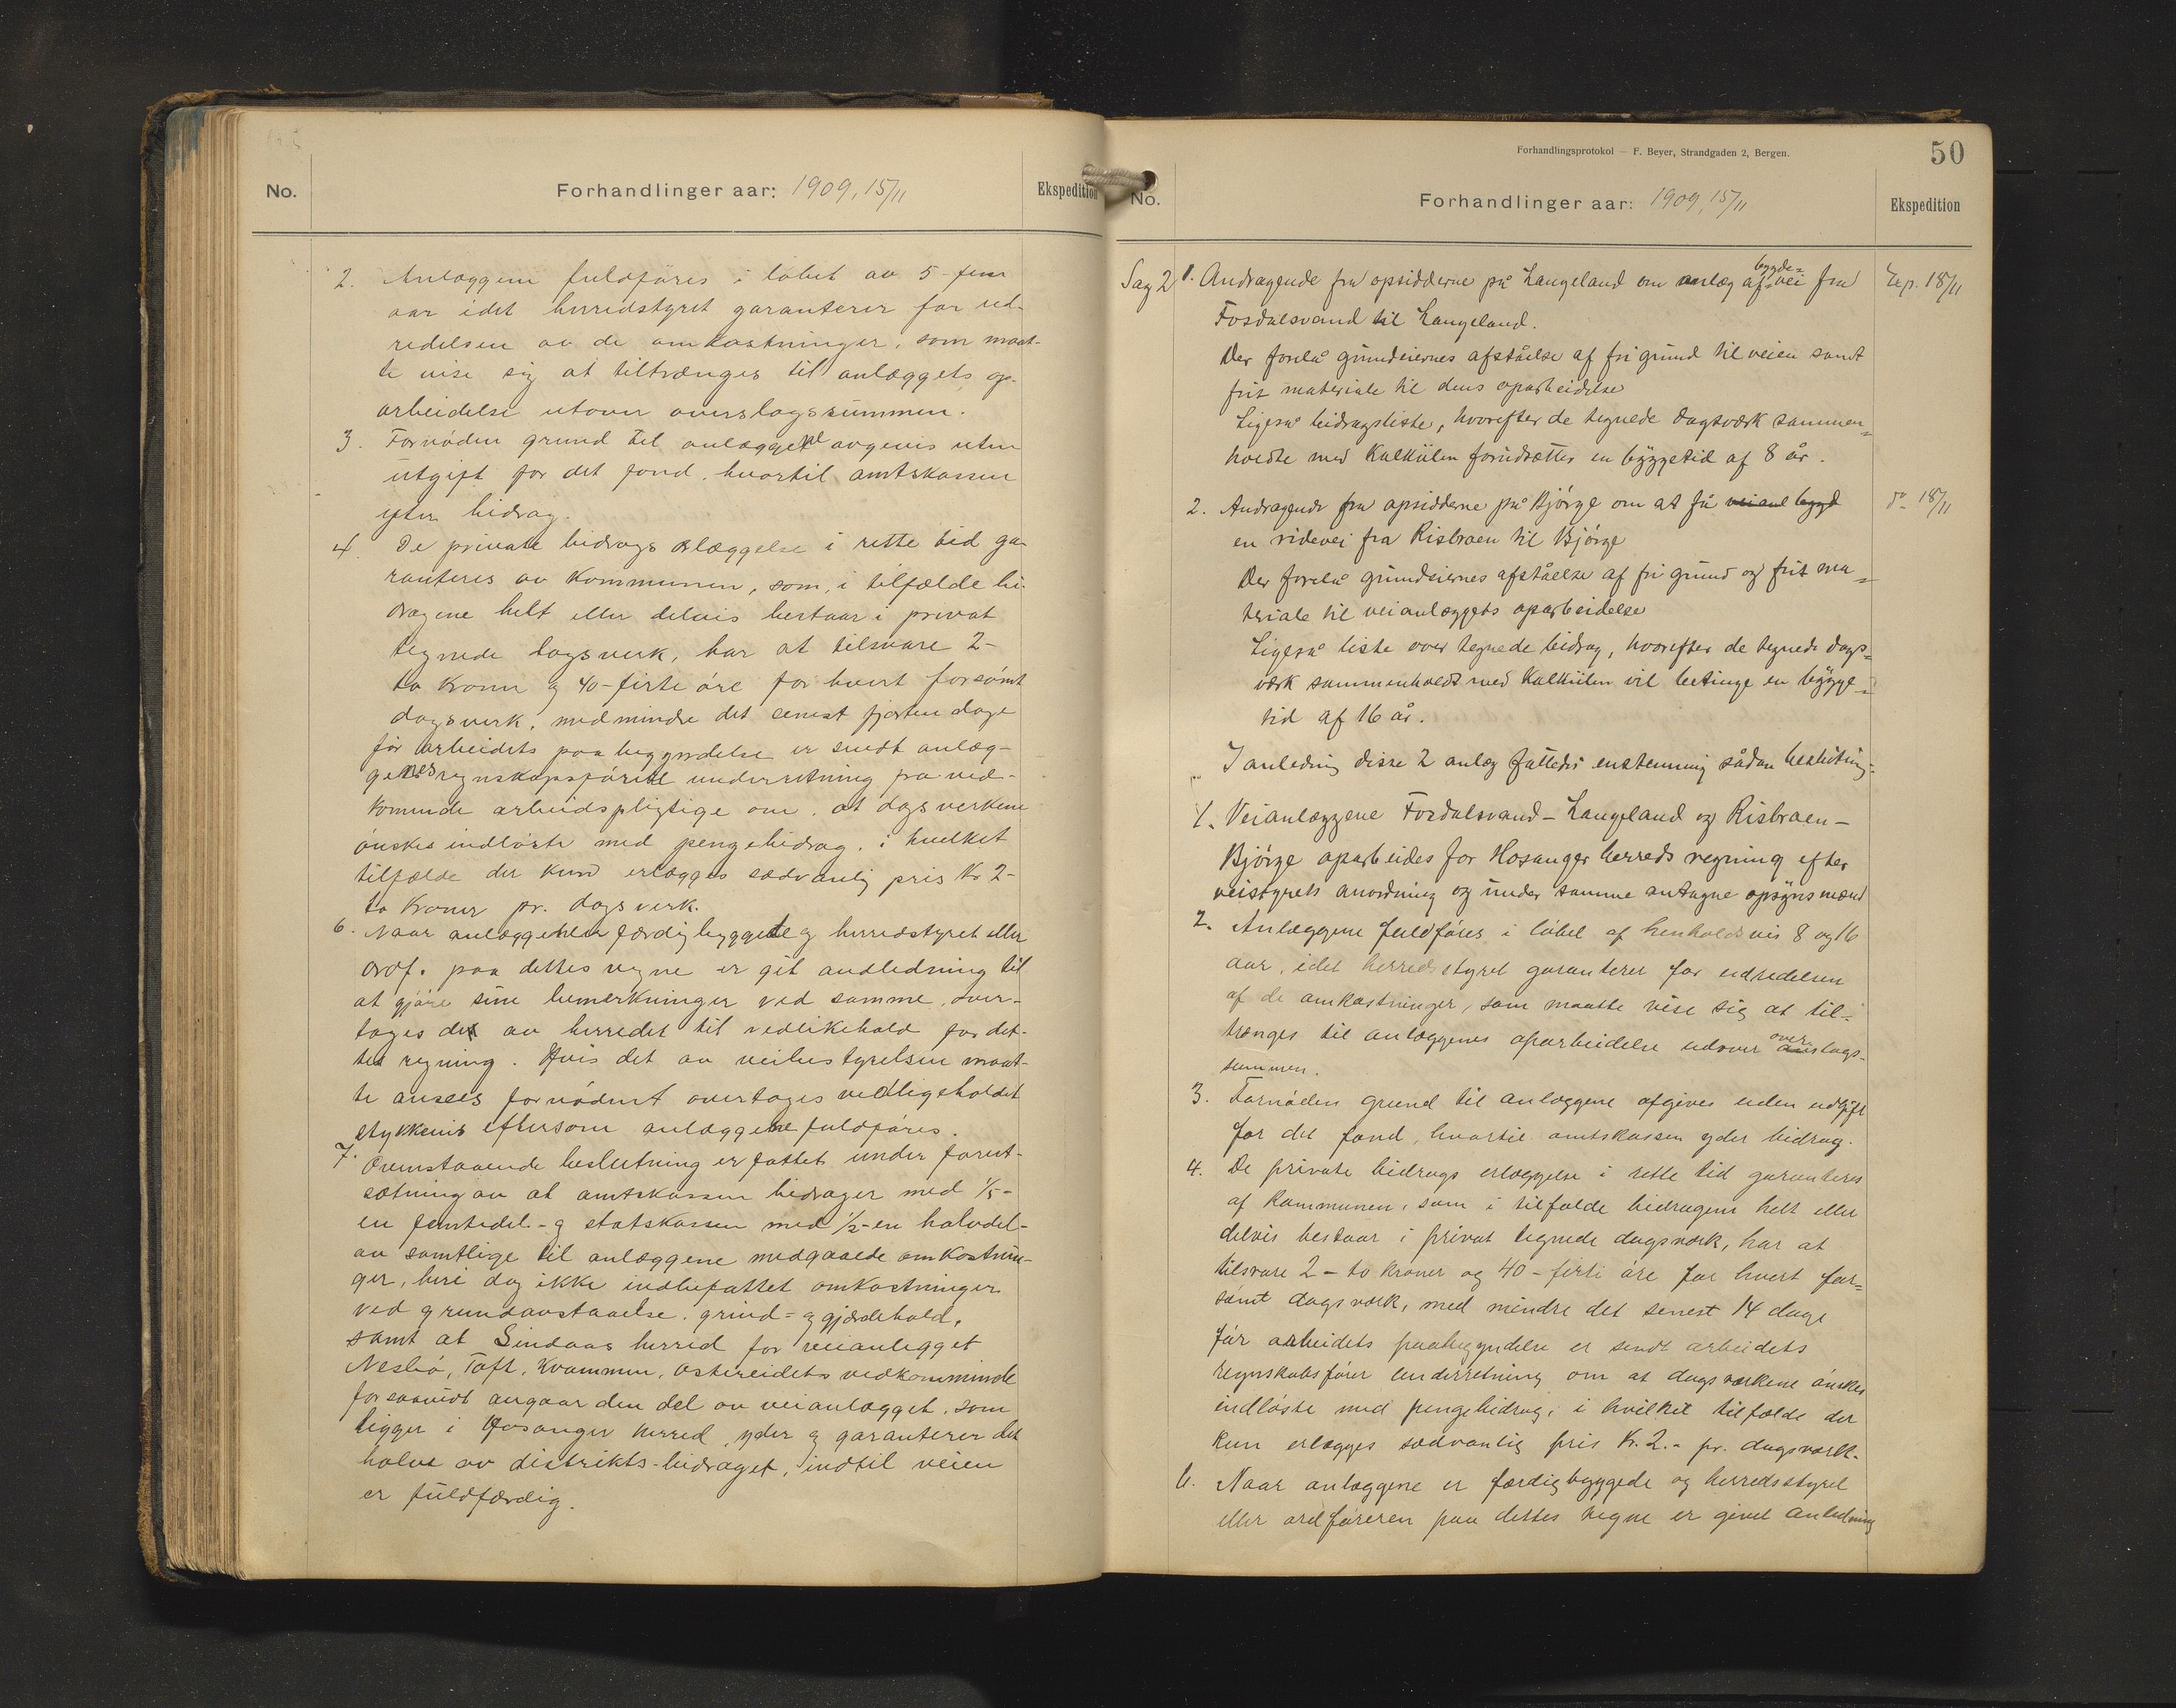 No.
Forhandlinger aar: 1909, 15/11
Ekspedition
2. Anlæggene fuldføres i løbet av 5-fem
aar idet herredstyret garanterer for ud-
redelsen av de omkostninger, som maat-
te vise sig at tiltrænges til anlæggets op-
arbeidelse utover overslagssummen.
3. Fornøden grund til anlæggene avgives uten
utgift for det fond, hvortil amtskassen
yter bidrag.
4. De private bidrags erlæggelse i rette tid ga-
ranteres av kommunen, som, i tilfælde bi-
dragene helt eller delvis bestaar i privat
tegnede dagsverk, har at tilsvare 2-
to kroner og 40-firti øre for hvert forsømt
dagsverk, medmindre det senest fjorten dage
før arbeidets paabegyndelse er sendt anlæg-
genes regnskapsfører underretning fra ved-
kommende arbeidspligtige om, at dagsverkene
ønskes indløste med pengebidrag, i hvilket
tilfælde der kun erlægges sædvanlig pris Kr 2-
to kroner pr. dagsverk.
6. Naar anlæggene er færdigbyggede og herredstyret eller
ordf. paa dettes vegne er git andledning til
at gjøre sine bemerkninger ved samme, over-
tages de av herredet til vedlikehold for det-
tes regning. Hvis det av veibestyrelsen maat-
te ansees fornødent overtages vedligeholdet
stykkevis eftersom anlæggene fuldføres.
7. Ovenstaaende beslutning er fattet under forut-
sætning av at amtskassen bidrager med 1/5-
en femtedel - og statskassen med 1/2-en halvdel-
av samtlige til anlæggene medgaaede omkostnin-
ger, heri dog ikke indbefattet omkostninger
ved grundavstaaelse, grind- og gjærdehold,
samt at Lindaas herred for veianlegget
Nesbø, Toft, Kvammen, Ostereidets vedkommende
forsaavidt angaar den del av veianlægget, som
ligger i Hosanger herred, yder og garanterer det
halve av distrikts-bidraget, indtil veien
er fuldfærdig.
Forhandlingsprotokol — F. Beyer, Strandgaden 2, Bergen.
50
No.
Forhandlinger aar: 1909, 15/11
Ekspedition
Sag 2 1. Andragende fra opsidderne på Langeland om anlæg af bygde-vei fra Exp. 18/11
Fosdalsvand til Langeland.
Der forelå grundeiernes afståelse af fri grund til veien samt
frit materiale til dens oparbeidelse
Ligeså bidragsliste, hvorefter de tegnede dagsværk sammen-
holdte med kalkülen forudsætter en byggetid af 8 år.
2. Andragende fra opsidderne på Bjørge om at få veianl bygd do 18/11
en ridevei fra Risbraen til Bjørge
Der forelå grundeiernes afståelse af fri grund og frit ma-
teriale til veianlæggets oparbeidelse
Ligeså liste over tegnede bidrag, hvorefter de tegnede dags-
værk sammenholdt med kalkülen vil betinge en bygge-
tid af 16 år.
I anledning disse 2 anlæg fattedes enstemmig sådan beslutning:
1. Veianlæggene Fosdalsvand - Langeland og Risbraen -
Bjørge oparbeides for Hosanger herreds regning efter
veistyrets anordning og under samme antagne opsynsmænd
2. Anlæggene fuldføres i løbet af henholdsvis 8 og 16
aar, idet herredsstyret garanterer for udredelsen
af de omkostninger, som maatte vise sig at til-
trænges til anlæggenes oparbeidelse udover overslags-
summen.
3. Fornøden grund til anlæggene afgives uden udgift
for det fond, hvortil amtskassen yder bidrag.
4. De private bidrags erlæggelse i rette tid garanteres
af kommunen, som i tilfælde bidragene helt eller
delvis bestaar i privat tegnede dagsværk, har at
tilsvare 2 - to kroner og 40 - firti øre for hvert for-
sømt dagsværk, med mindre det senest 14 dage
før arbeidets paabegyndelse er sendt arbeidets
regnskabsfører underretning om at dagsværkene ønskes
indløste med pengebidrag, i hvilket tilfælde der
kun erlægges sædvanlig pris Kr. 2.- pr. dagsværk.
6. Naar anlæggene er færdigbyggede og herredsstyret
eller ordføreren paa dettes vegne er givet anledning